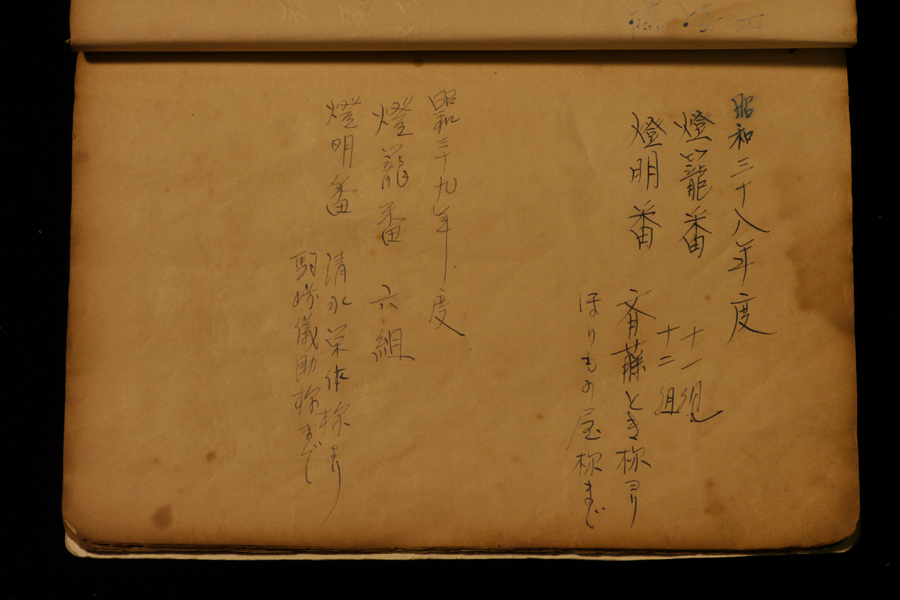 昭和三十八年度
燈籠番 十一組
十二組
燈明番 斉藤とき様ヨリ
ほりもの屋様まで
昭和三十九年度
燈籠番 六組
燈明番 清水栄作様より
駒崎儀助様まで